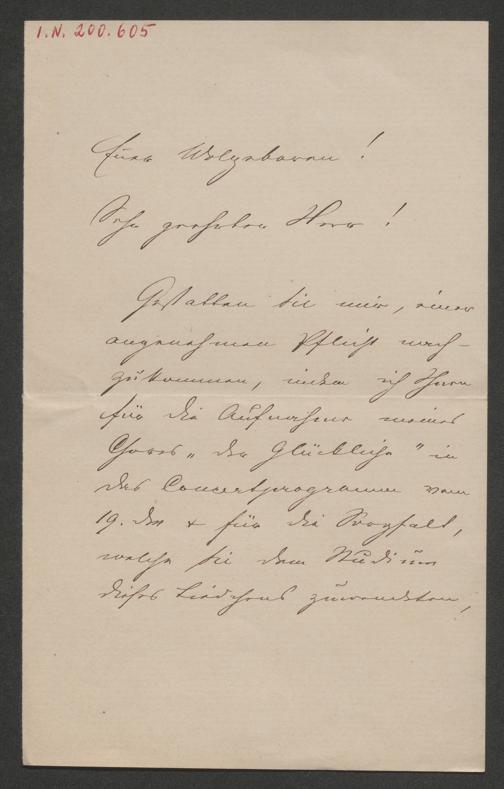 I.N. 200.605
Euer Wolgeboren!
Sehr geehrter Herr!
Gestatten Sie mir, einer
angenehmen Pflicht nach-
zukommen, indem ich Ihnen
für die Aufnahme meines
Chores „der Glückliche" in
das Concertprogramm vom
19. d. & für die Sorgfalt,
welche Sie dem Studium
dieses Liedchens zuwendeten,